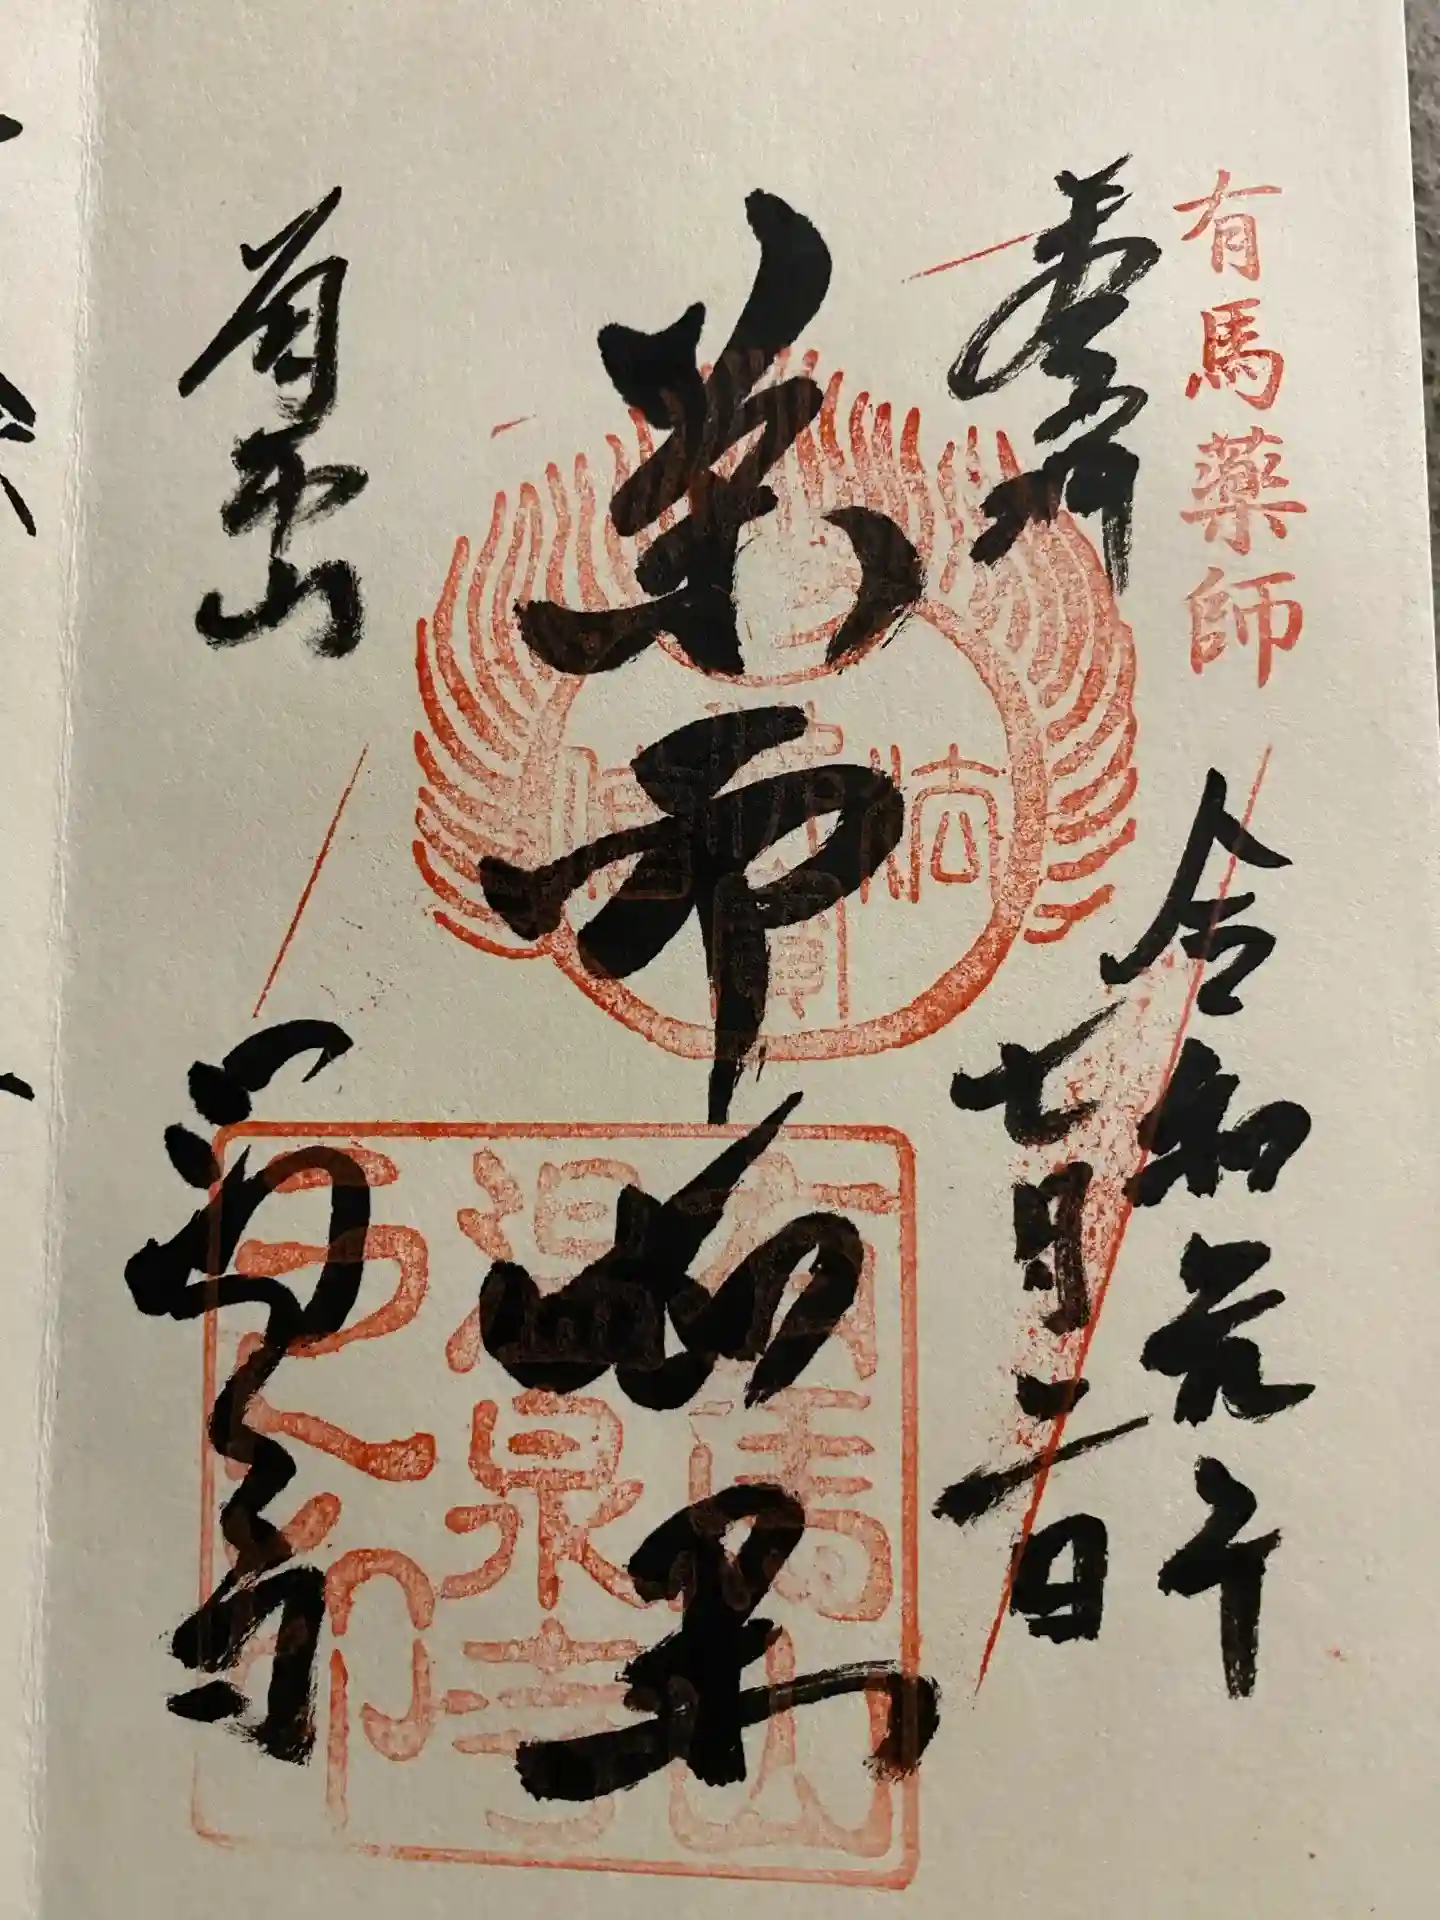 有馬薬師
奉拝
令和元年
七月二日
薬师如来
有馬山
温泉寺
有馬山
温泉寺
之印